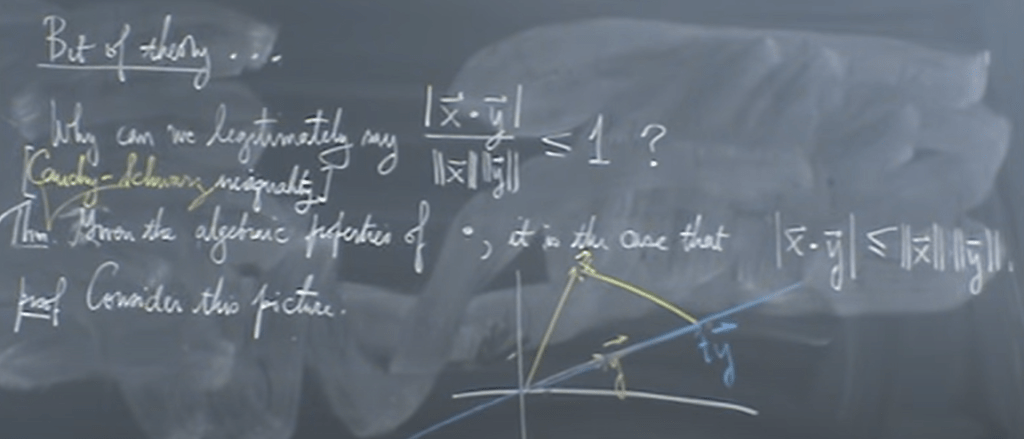 Bit of theory ...
Why can we legitimately say |x⃗ · y⃗| / ‖x⃗‖ ‖y⃗‖ ≤ 1 ?
[Cauchy-Schwarz inequality]
Thm. Given the algebraic properties of •, it is the case that |x⃗ · y⃗| ≤ ‖x⃗‖ ‖y⃗‖.
proof Consider this picture.
x⃗
y⃗
ty⃗